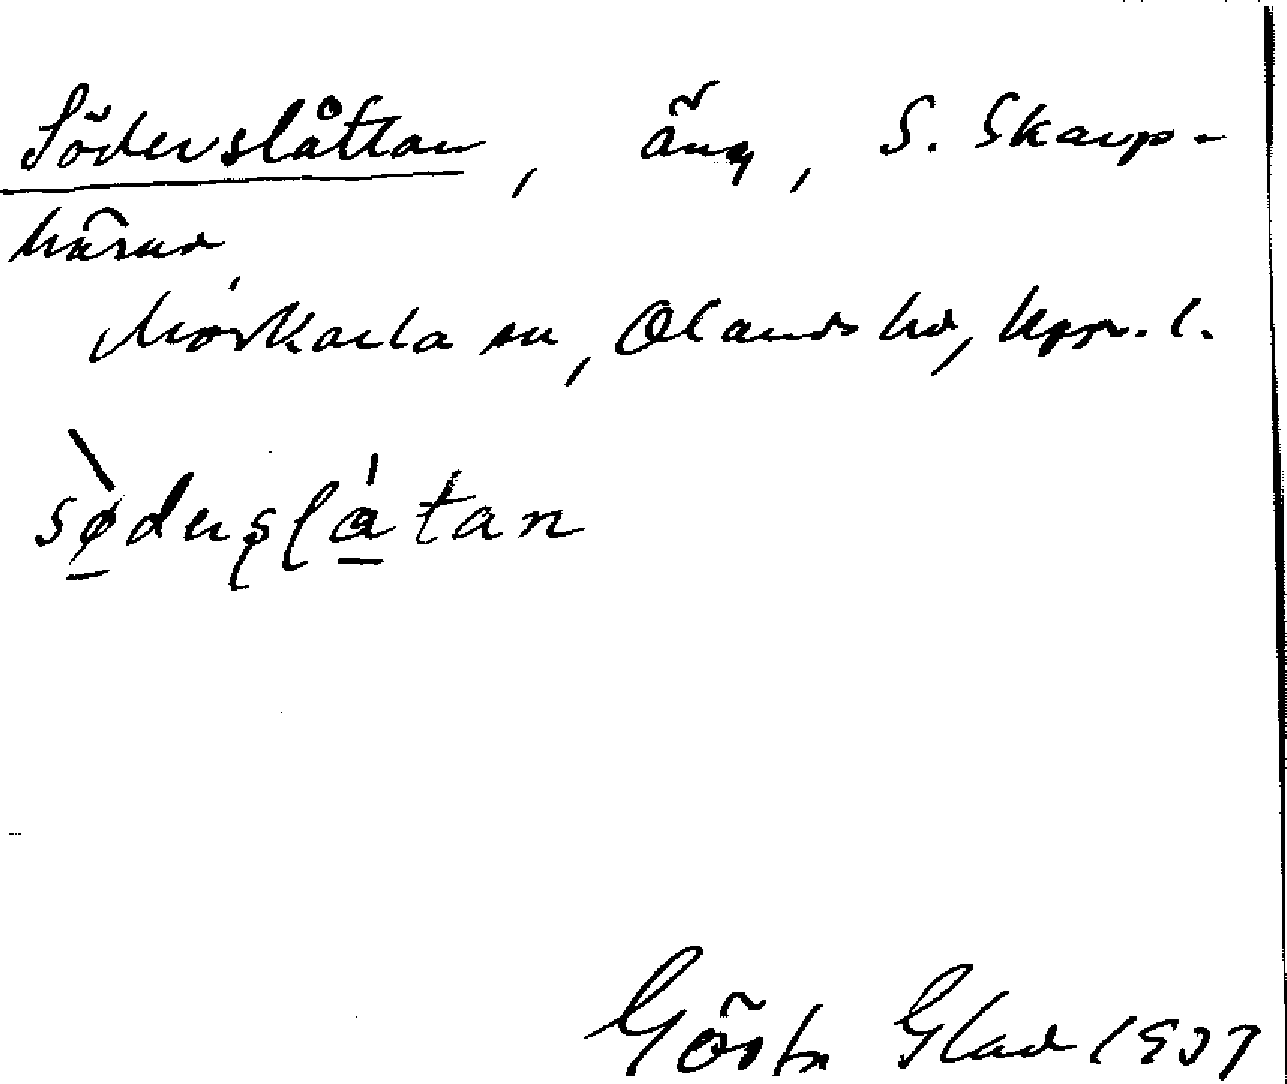 Söderslåttan, äng, S. Skarp-
härad
Morkarla sn, Olands hd, Uppl.
södeṛslåtan
Gösta Glad 1937